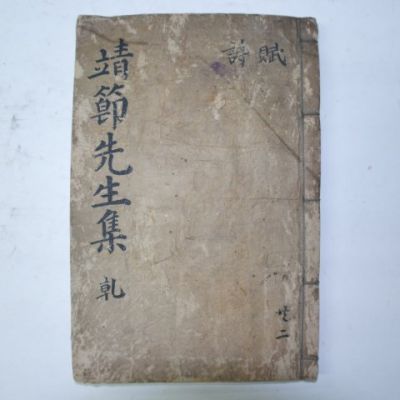 靖節先生集 乾
詩賦
共二